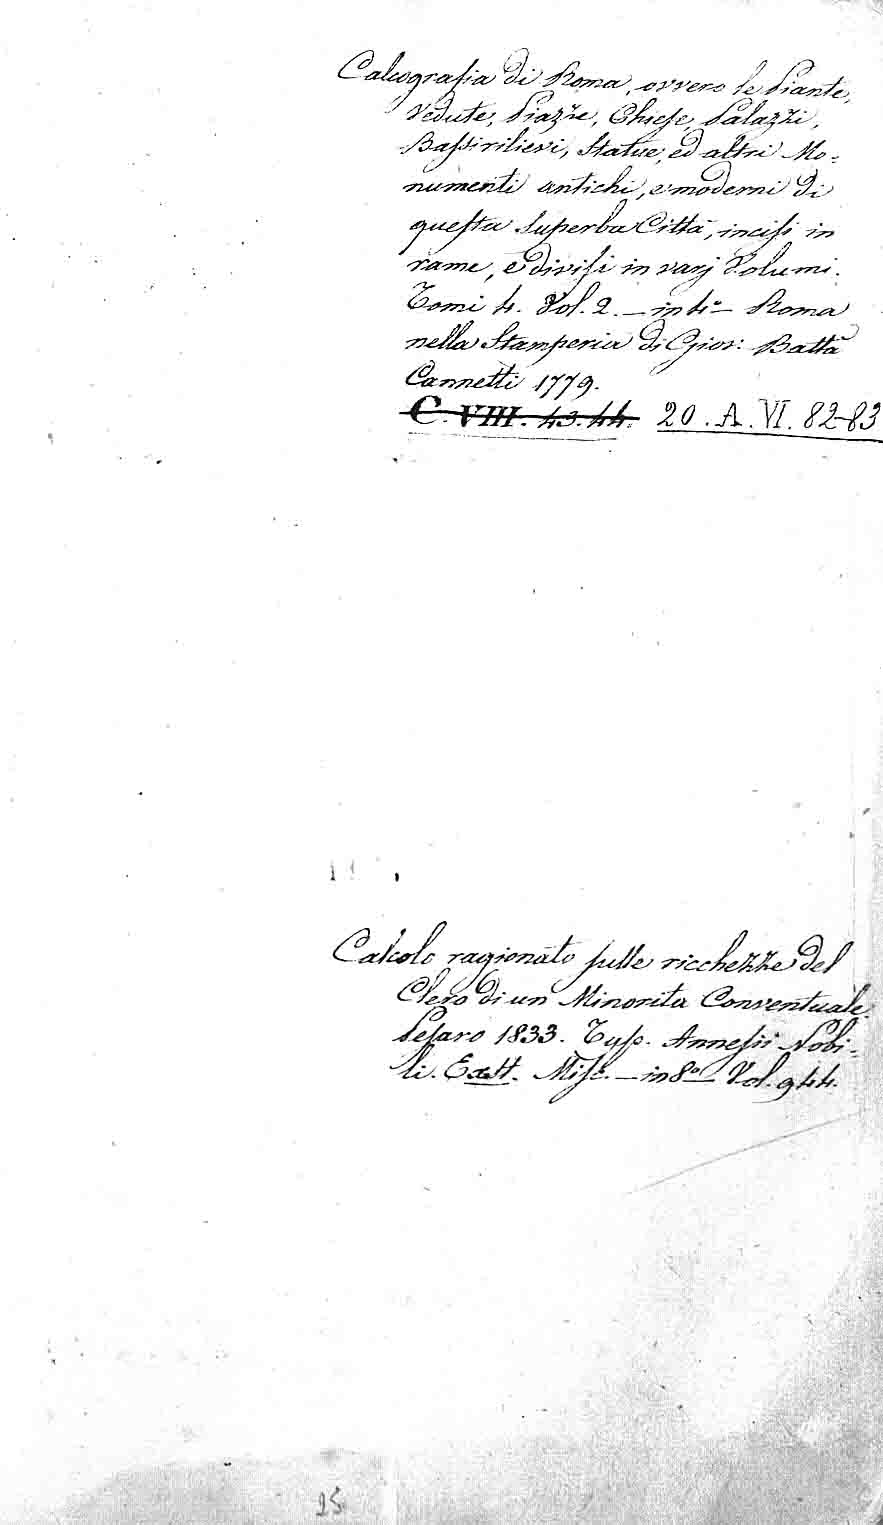 Calcografia di Roma, ovvero le Piante,
Vedute, Piazze, Chiese, Palazzi,
Bassirilievi, Statue, ed altri Mo=
numenti antichi, e moderni di
questa superba Città, incisi in
rame, e divisi in varj Volumi.
Tomi 4. Vol. 2. — in 4º — Roma
nella Stamperia di Gios: Batta
Cannetti 1779.
C. VIII. 43. 44. 20. A. VI. 82-83
Calcolo ragionato sulle ricchezze del
Clero di un Minorita Conventuale.
Pesaro 1833. Typ. Annesii Nobi=
li. Misc. — in 8º — Vol. 944.
25